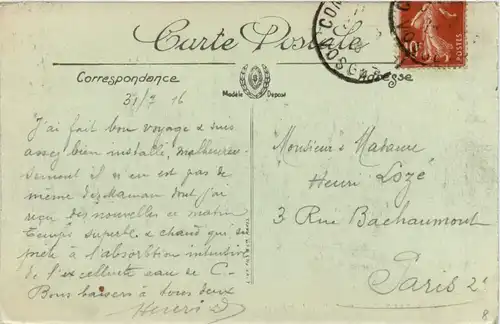 Carte Postale
Correspondance
Modèle Déposé
Adresse
POSTES
31/7 16
J'ai fait bon voyage & suis
assez bien installé, malheureu-
sement il n'en est pas de
même de Maman dont j'ai
reçu des nouvelles ce matin
Temps superbe & chaud qui se
prête à l'absorption intensive
de l'excellente eau de C-
Bons baisers à tous deux
Henri
Monsieur & Madame
Henri Lozé
3 Rue Bachaumont
Paris 2e
8